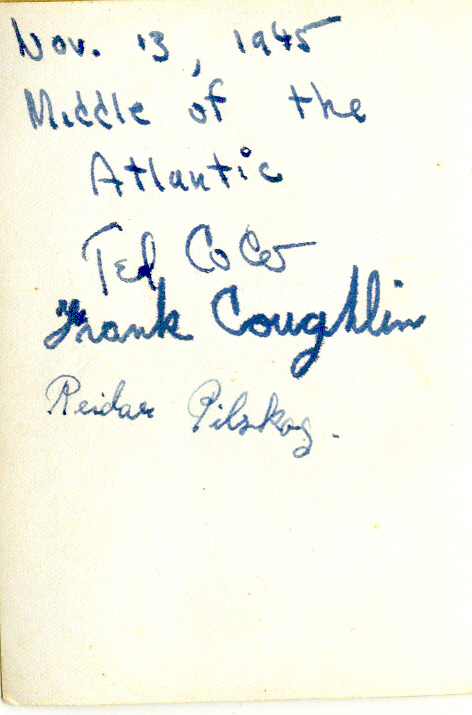 Nov. 13, 1945
Middle of the
Atlantic
Ted
Frank Coughlin
Reidar Pilskog.